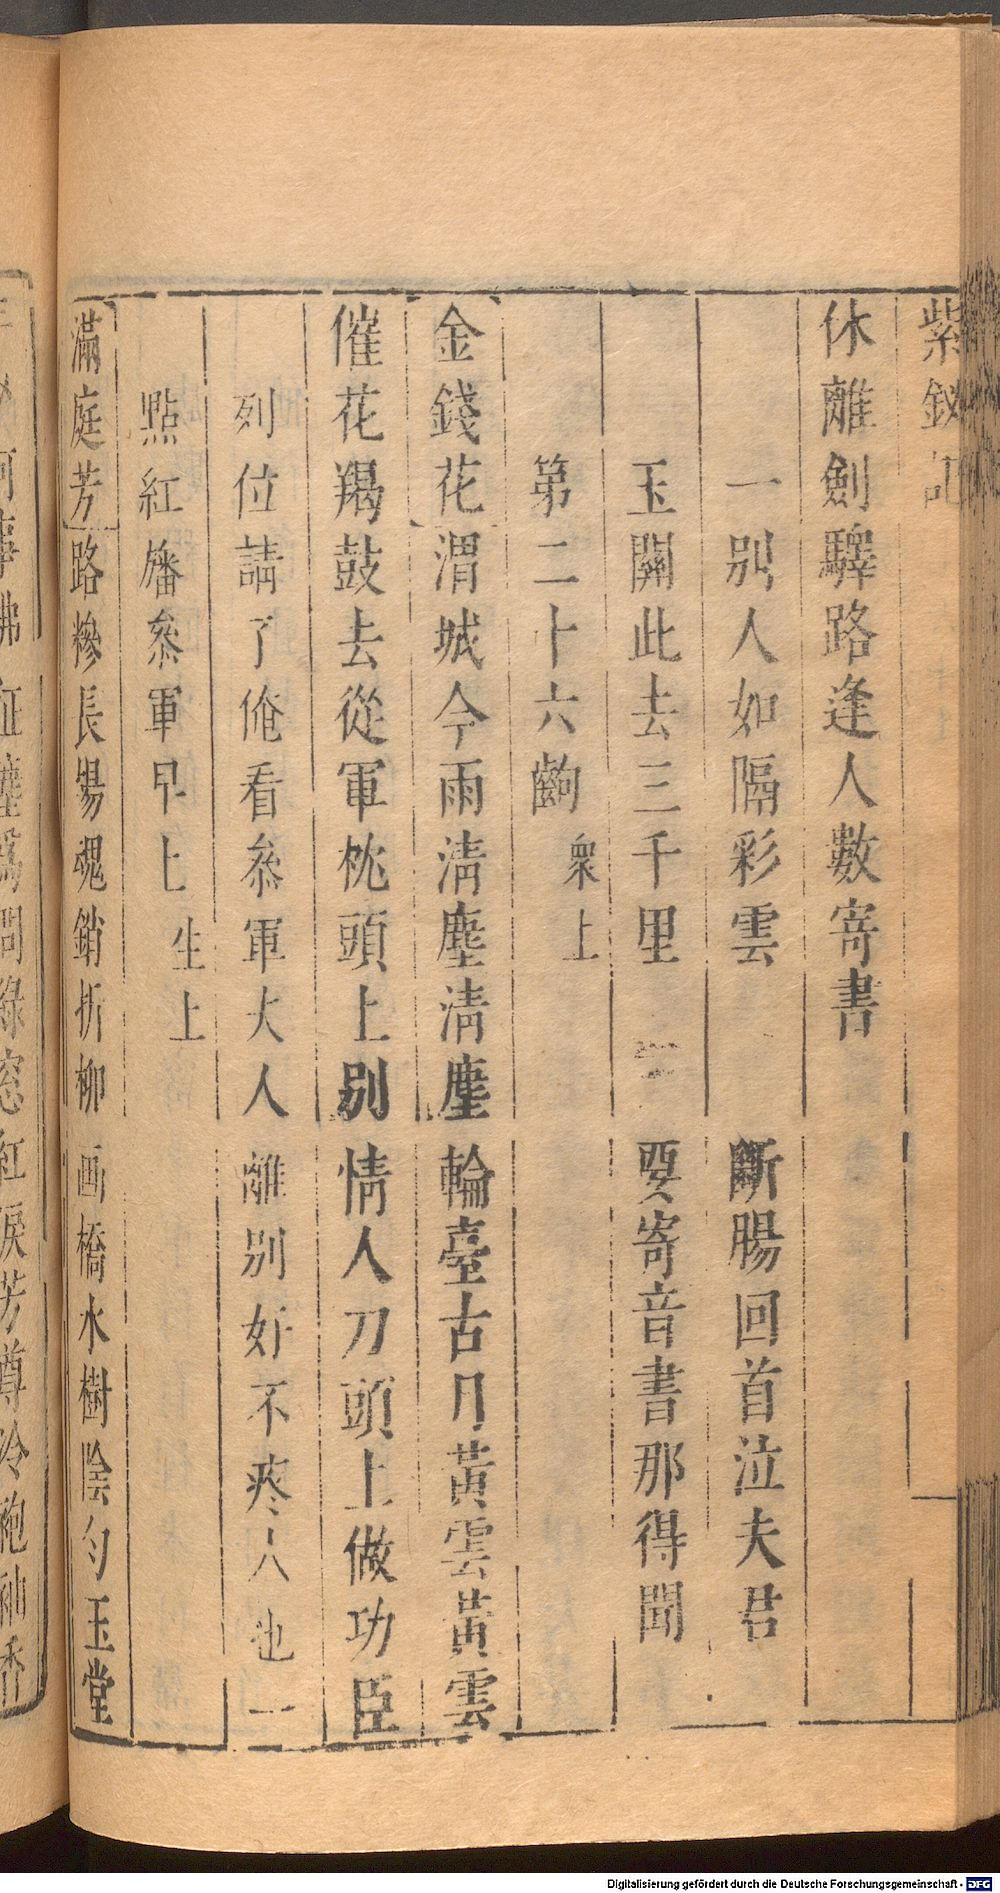 紫釵記
休離劍驛路逢人數寄書
一別人如隔彩雲　斷腸回首泣夫君
玉關此去三千里　要寄音書那得聞
第二十六齣　衆上
金錢花渭城今雨清塵清塵輪臺古月黃雲黃雲
催花羯鼓去從軍枕頭上別情人刀頭上做功臣
列位請了俺看叅軍大人離別好不疼人也一
點紅旛叅軍早上　生上
滿庭芳路糝長場魂銷折柳画橋水樹陰勻玉堂
何事拂征塵爲問綠窓紅淚芳尊冷袍袖香
Digitalisierung gefördert durch die Deutsche Forschungsgemeinschaft - DFG